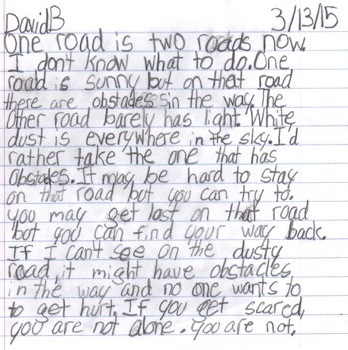 David B 3/13/15
One road is two roads now.
I don't know what to do. One
road is sunny but on that road
there are obstacles in the way. The
other road barely has light. White
dust is everywhere in the sky. I'd
rather take the one that has
obstacles. It may be hard to stay
on that road but you can try to.
you may get lost on that road
but you can find your way back.
If I can't see on the dusty
road, it might have obstacles
in the way and no one wants to
to get hurt. If you get scared,
you are not alone. you are not.